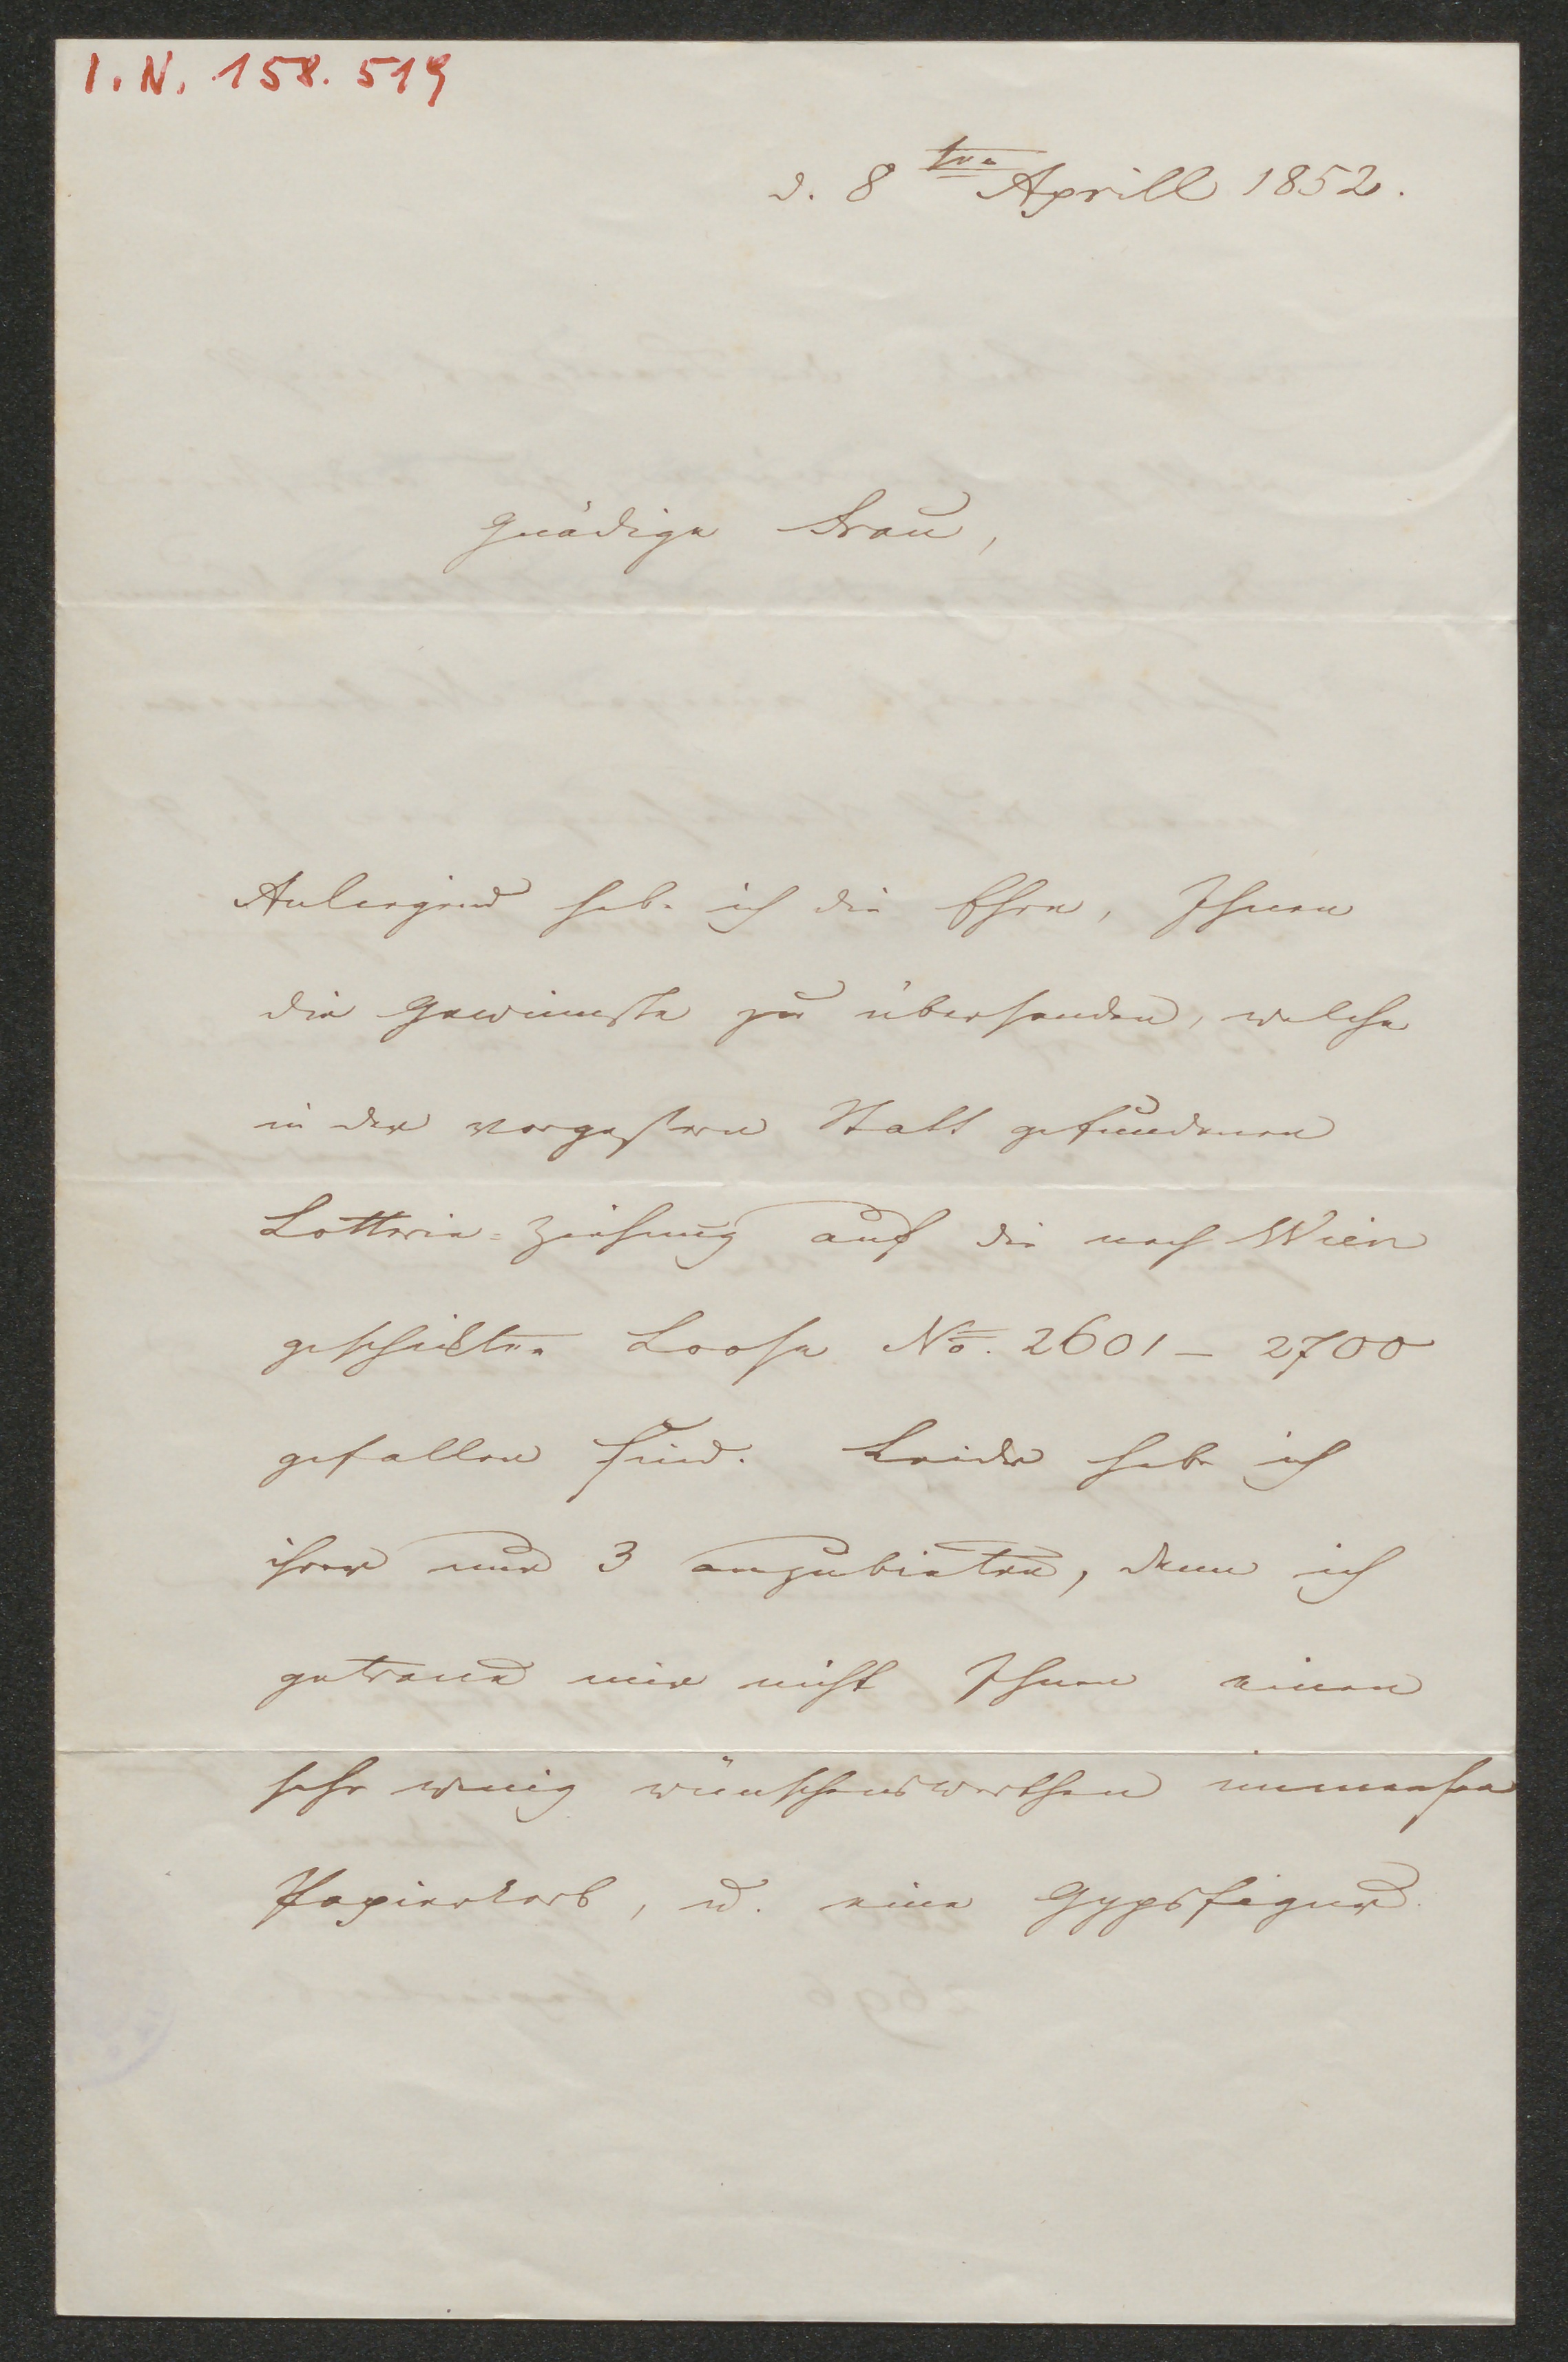 I. N. 158.519
d. 8ten Aprill 1852.
Gnädige Frau,
Anliegend habe ich die Ehre, Ihnen
die Gewinnste zu übersenden, welche
in der vorgestern Statt gefundenen
Lotterie=Ziehung auf die nach Wien
geschickten Loose No. 2601 – 2700
gefallen sind. Leider habe ich
ihrer nur 3 anzubieten, denn ich
getraue mir nicht Ihnen einen
sehr wenig wünschenswerthen immensen
Papierkorb, u. eine Gypsfigur.